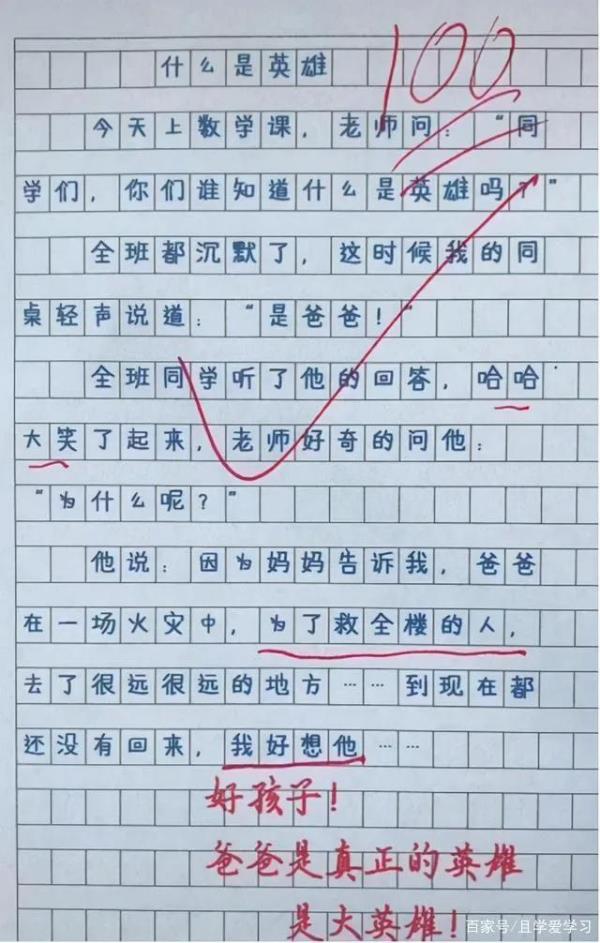 100
什么是英雄
今天上数学课，老师问：“同
学们，你们谁知道什么是英雄吗？”
全班都沉默了，这时候我的同
桌轻声说道：“是爸爸！”
全班同学听了他的回答，哈哈
大笑了起来，老师好奇的问他：
“为什么呢？”
他说：因为妈妈告诉我，爸爸
在一场火灾中，为了救全楼的人，
去了很远很远的地方……到现在都
还没有回来，我好想他……
好孩子！
爸爸是真正的英雄
是大英雄！
百家号/且学爱学习